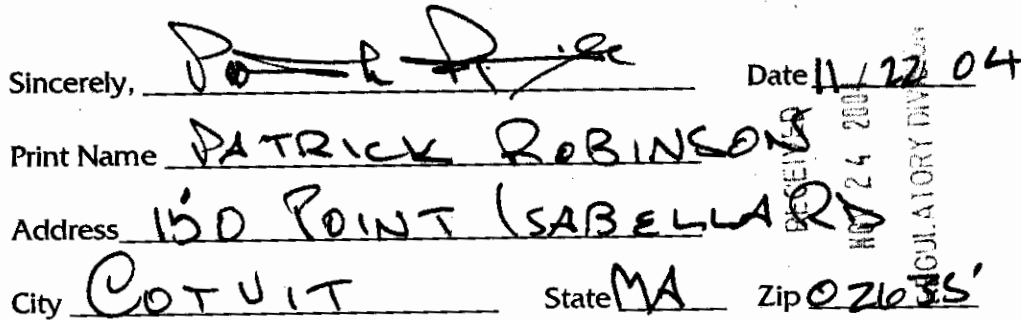 Sincerely, Date 11/22 04
Print Name PATRICK ROBINSON
Address 150 POINT ISABELLA RD
City COTUIT State MA Zip 02635
RECEIVED
NOV 24 200
REGULATORY DIV